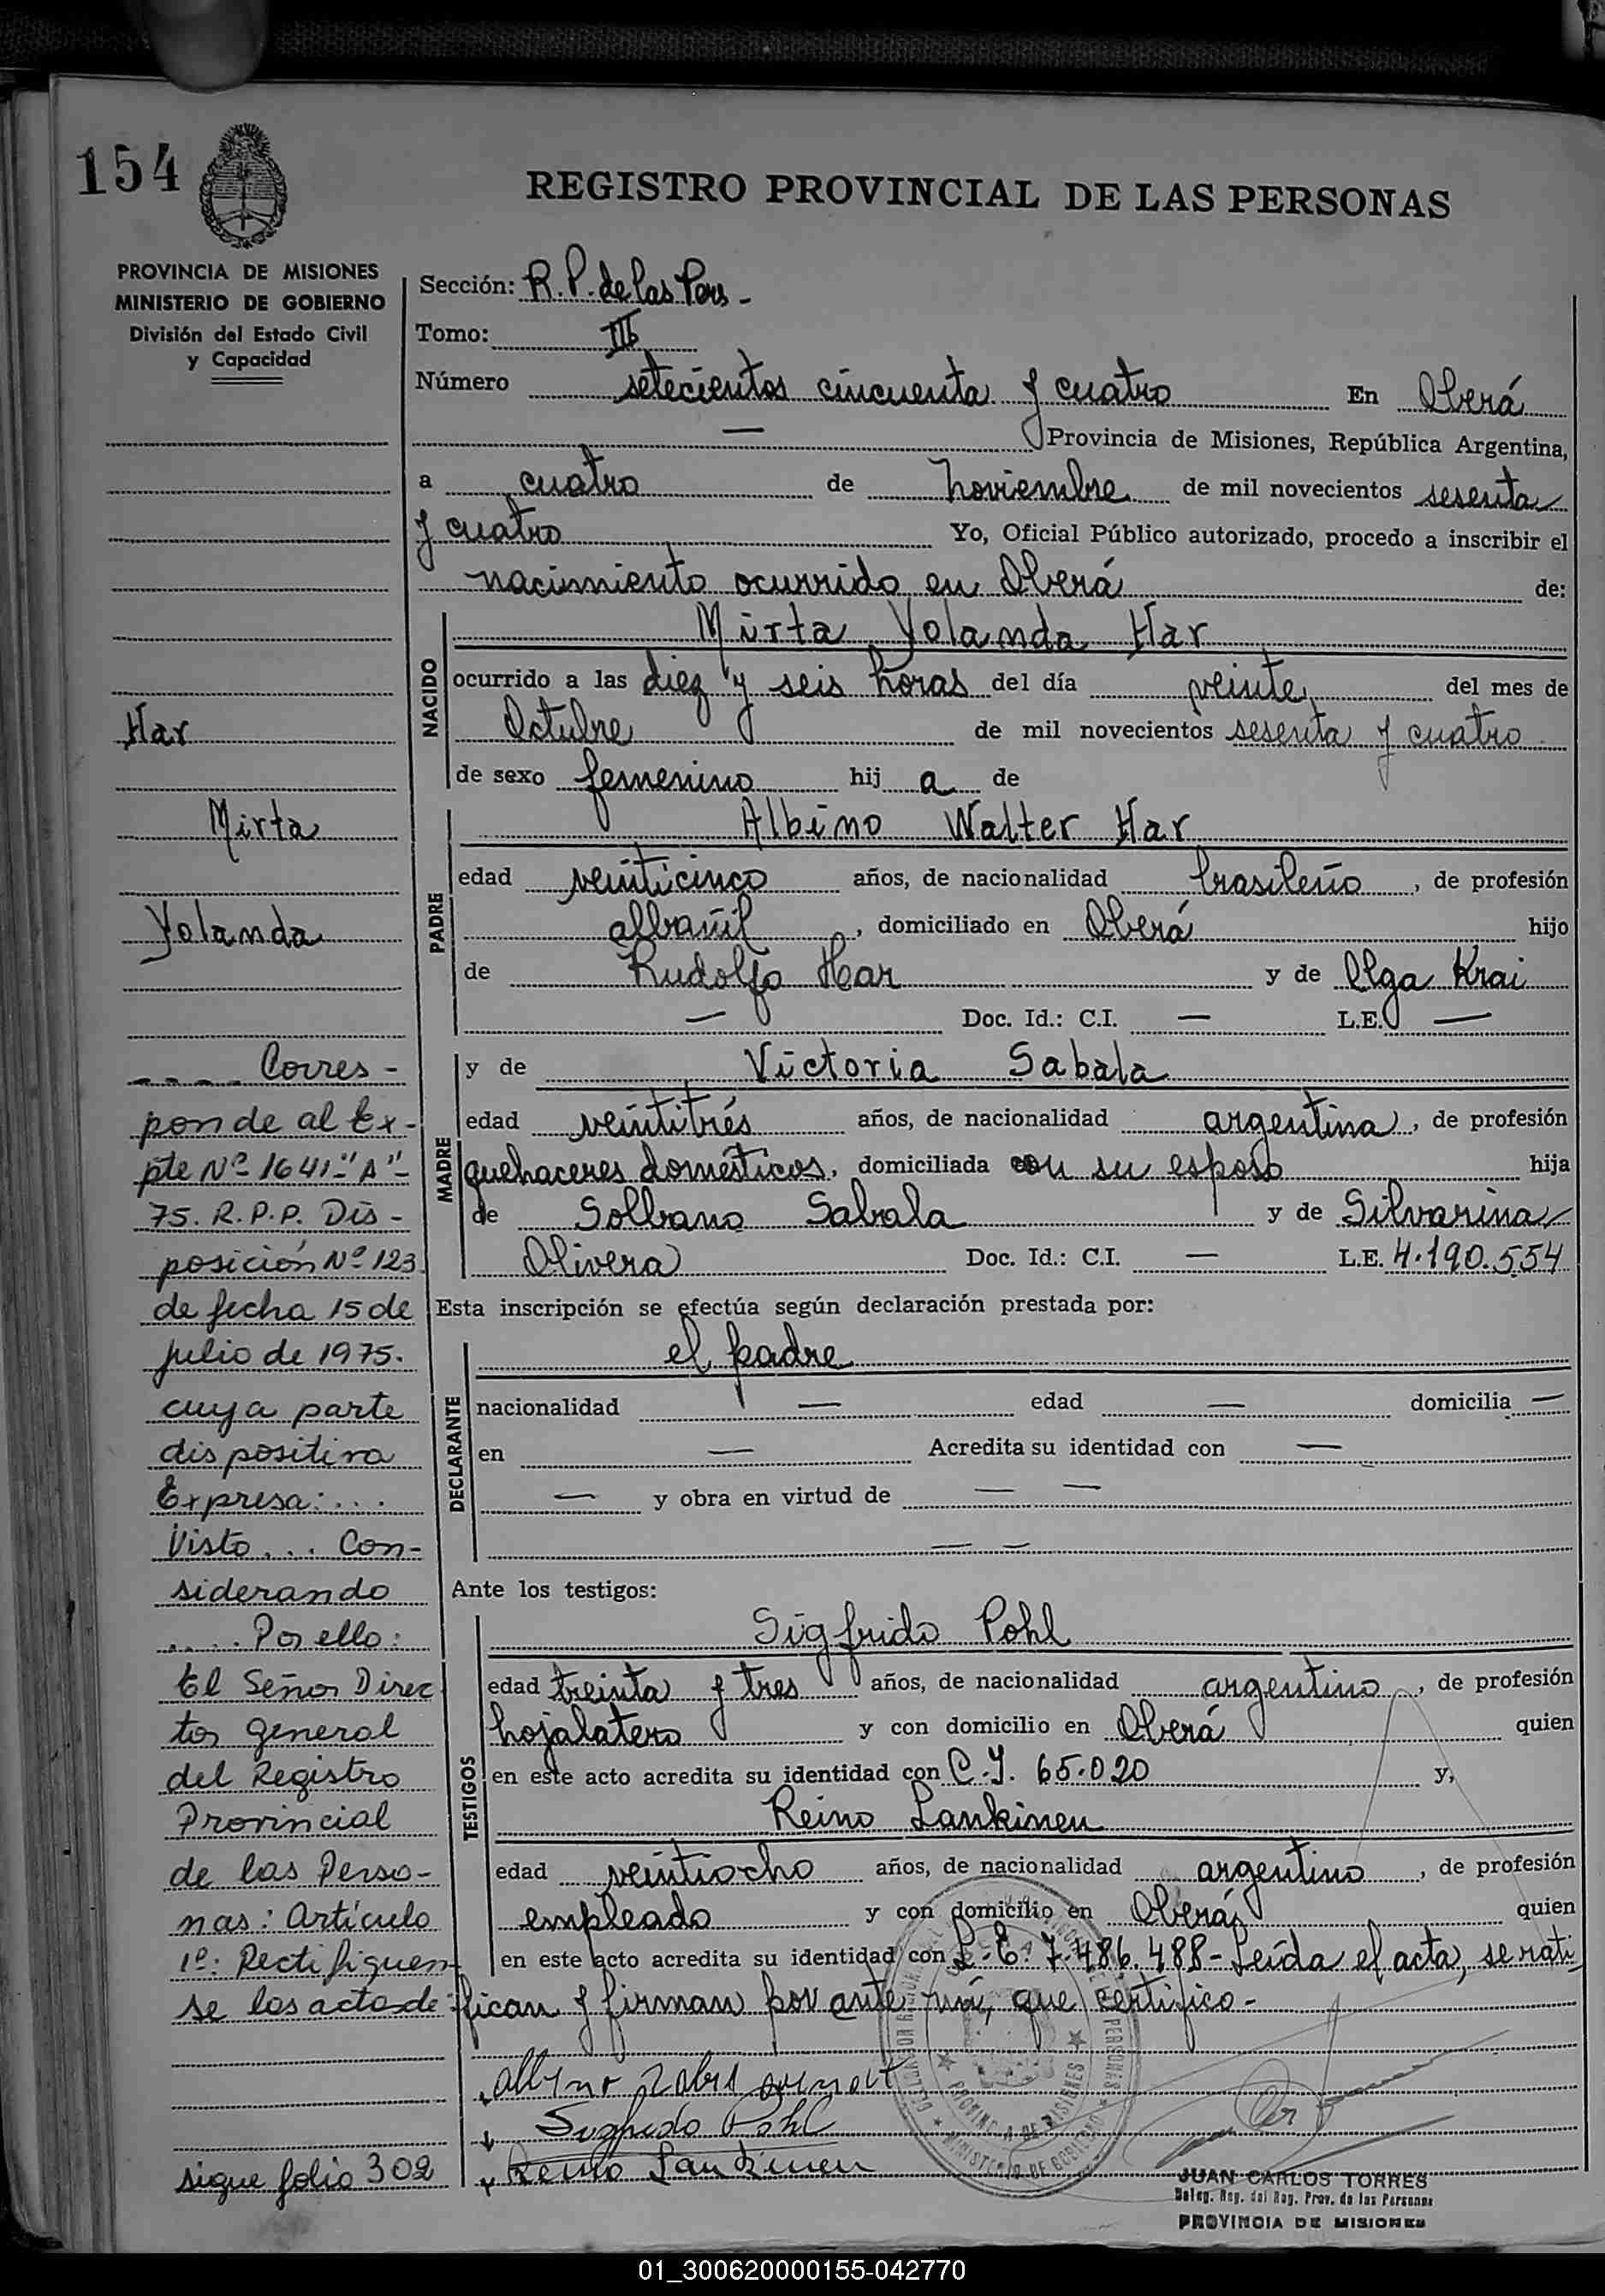 154
REGISTRO PROVINCIAL DE LAS PERSONAS
PROVINCIA DE MISIONES
MINISTERIO DE GOBIERNO
División del Estado Civil
y Capacidad
Har
Mirta
Yolanda
Corres-
ponde al Ex-
pte Nº 1641-"A"-
75. R.P.P. Dis-
posición Nº 123
de fecha 15 de
julio de 1975.
cuya parte
dispositiva
Expresa: ...
Visto ... Con-
siderando
.... Por ello:
El Señor Direc
tor General
del Registro
Provincial
de las Perso-
nas: Artículo
1º: Rectifiquen
se los actas de
sigue folio 302
Sección: R. P. de las Pers -
Tomo: III
Número setecientos cincuenta y cuatro En Oberá
— Provincia de Misiones, República Argentina,
a cuatro de noviembre de mil novecientos sesenta
y cuatro Yo, Oficial Público autorizado, procedo a inscribir el
nacimiento ocurrido en Oberá de:
NACIDO
Mirta Yolanda Har
ocurrido a las diez y seis horas del día veinte del mes de
Octubre de mil novecientos sesenta y cuatro
de sexo femenino hij a de
PADRE
Albino Walter Har
edad veinticinco años, de nacionalidad brasileño, de profesión
albañil, domiciliado en Oberá hijo
de Rudolfo Har y de Olga Krai
— Doc. Id.: C.I. — L.E. —
MADRE
y de Victoria Sabala
edad veintitrés años, de nacionalidad argentina, de profesión
quehaceres domésticos, domiciliada con su esposo hija
de Solbano Sabala y de Silvarina
Olivera Doc. Id.: C.I. — L.E. 4.190.554
Esta inscripción se efectúa según declaración prestada por:
DECLARANTE
el padre
nacionalidad — edad — domicilia —
en — Acredita su identidad con —
— y obra en virtud de — —
— —
Ante los testigos:
TESTIGOS
Sigfrido Pohl
edad treinta y tres años, de nacionalidad argentino, de profesión
hojalatero y con domicilio en Oberá quien
en este acto acredita su identidad con C.I. 65.020 y,
Reino Lankinen
edad veintiocho años, de nacionalidad argentino, de profesión
empleado y con domicilio en Oberá quien
en este acto acredita su identidad con L.E. 7.486.488- Leída el acta, se rati
fican y firman por ante mí, que certifico-
Sigfrido Pohl
Reino Lankinen
PROVINCIA DE MISIONES
MINISTERIO DE GOBIERNO
JUAN CARLOS TORRES
Deleg. Reg. del Reg. Prov. de las Personas
PROVINCIA DE MISIONES
01_300620000155-042770